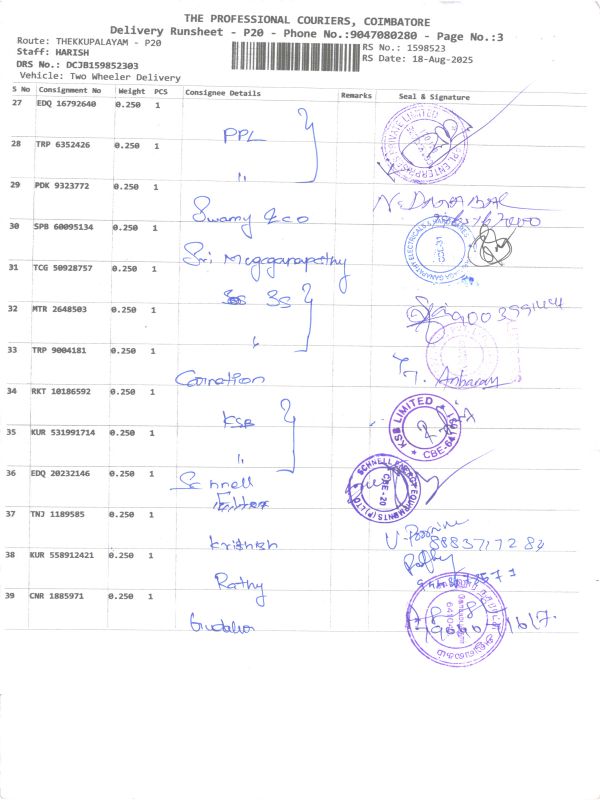 THE PROFESSIONAL COURIERS, COIMBATORE
Delivery Runsheet - P20 - Phone No.:9047080280 - Page No.:3
Route: THEKKUPALAYAM - P20
Staff: HARISH
DRS No.: DCJB159852303
Vehicle: Two Wheeler Delivery
RS No.: 1598523
RS Date: 18-Aug-2025
S No Consignment No Weight PCS Consignee Details Remarks Seal & Signature
27 EDQ 16792640 0.250 1 PPL
28 TRP 6352426 0.250 1 "
29 PDK 9323772 0.250 1 Swamy & co
30 SPB 60095134 0.250 1 Sri Megaganapathy
31 TCG 50928757 0.250 1 3S
32 MTR 2648503 0.250 1 "
33 TRP 9004181 0.250 1 Carnation
34 RKT 10186592 0.250 1 KSB KSB LIMITED
35 KUR 531991714 0.250 1 " CBE-641
36 EDQ 20232146 0.250 1 Schnell SCHNELL ENERGY EQUIPMENTS (P) LTD CBE-20
37 TNJ 1189585 0.250 1 Krithish
38 KUR 558912421 0.250 1 Rathy
39 CNR 1885971 0.250 1